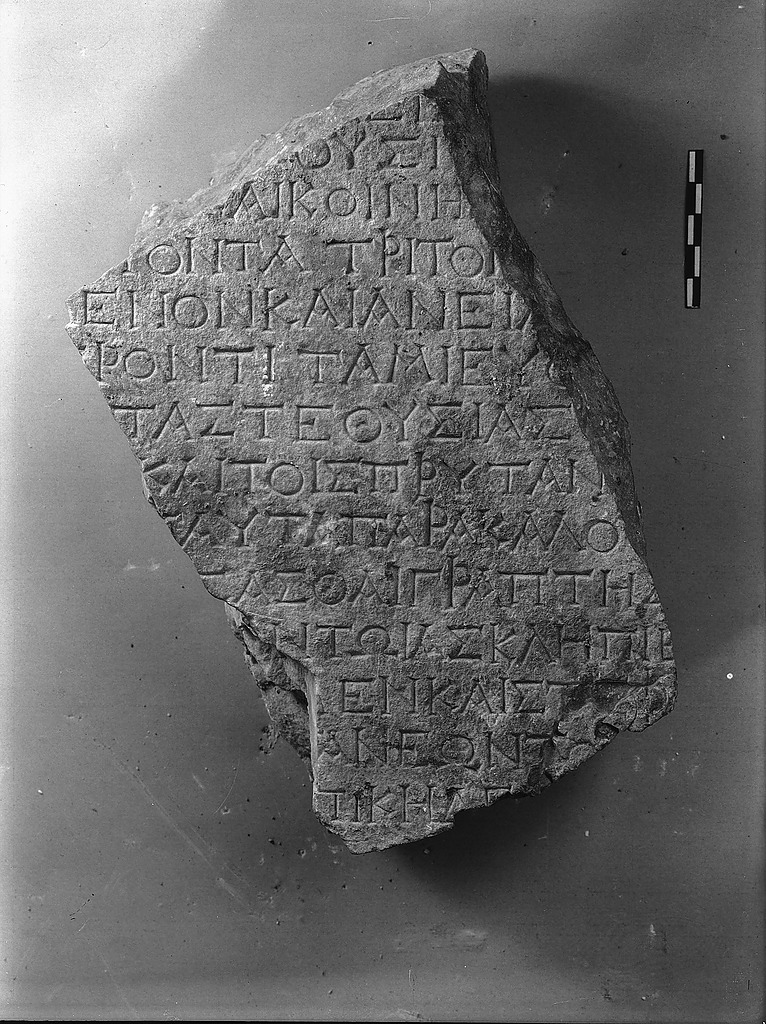 ΟΥΣΙ
ΑΙΚΟΙΝΗ
ΟΝΤΑ ΤΡΙΤΟΝ
ΕΠΟΝΚΑΙΑΝΕΙΝ
ΡΟΝΤΙ ΤΑΜΙΕΥ
ΤΑΣΤΕΘΥΣΙΑΣ
ΚΑΙΤΟΙΣΠΡΥΤΑΝ
ΤΑΥΤΑΠΑΡΑΚΑΛΟ
ΤΑΣΘΑΙΓΡΑΠΤΗ
ΝΤΩΙΑΣΚΛΗΠΙΕ
ΕΝΚΑΙΣΤ
ΑΝΕΩΝΤ
ΤΙΚΗΔ